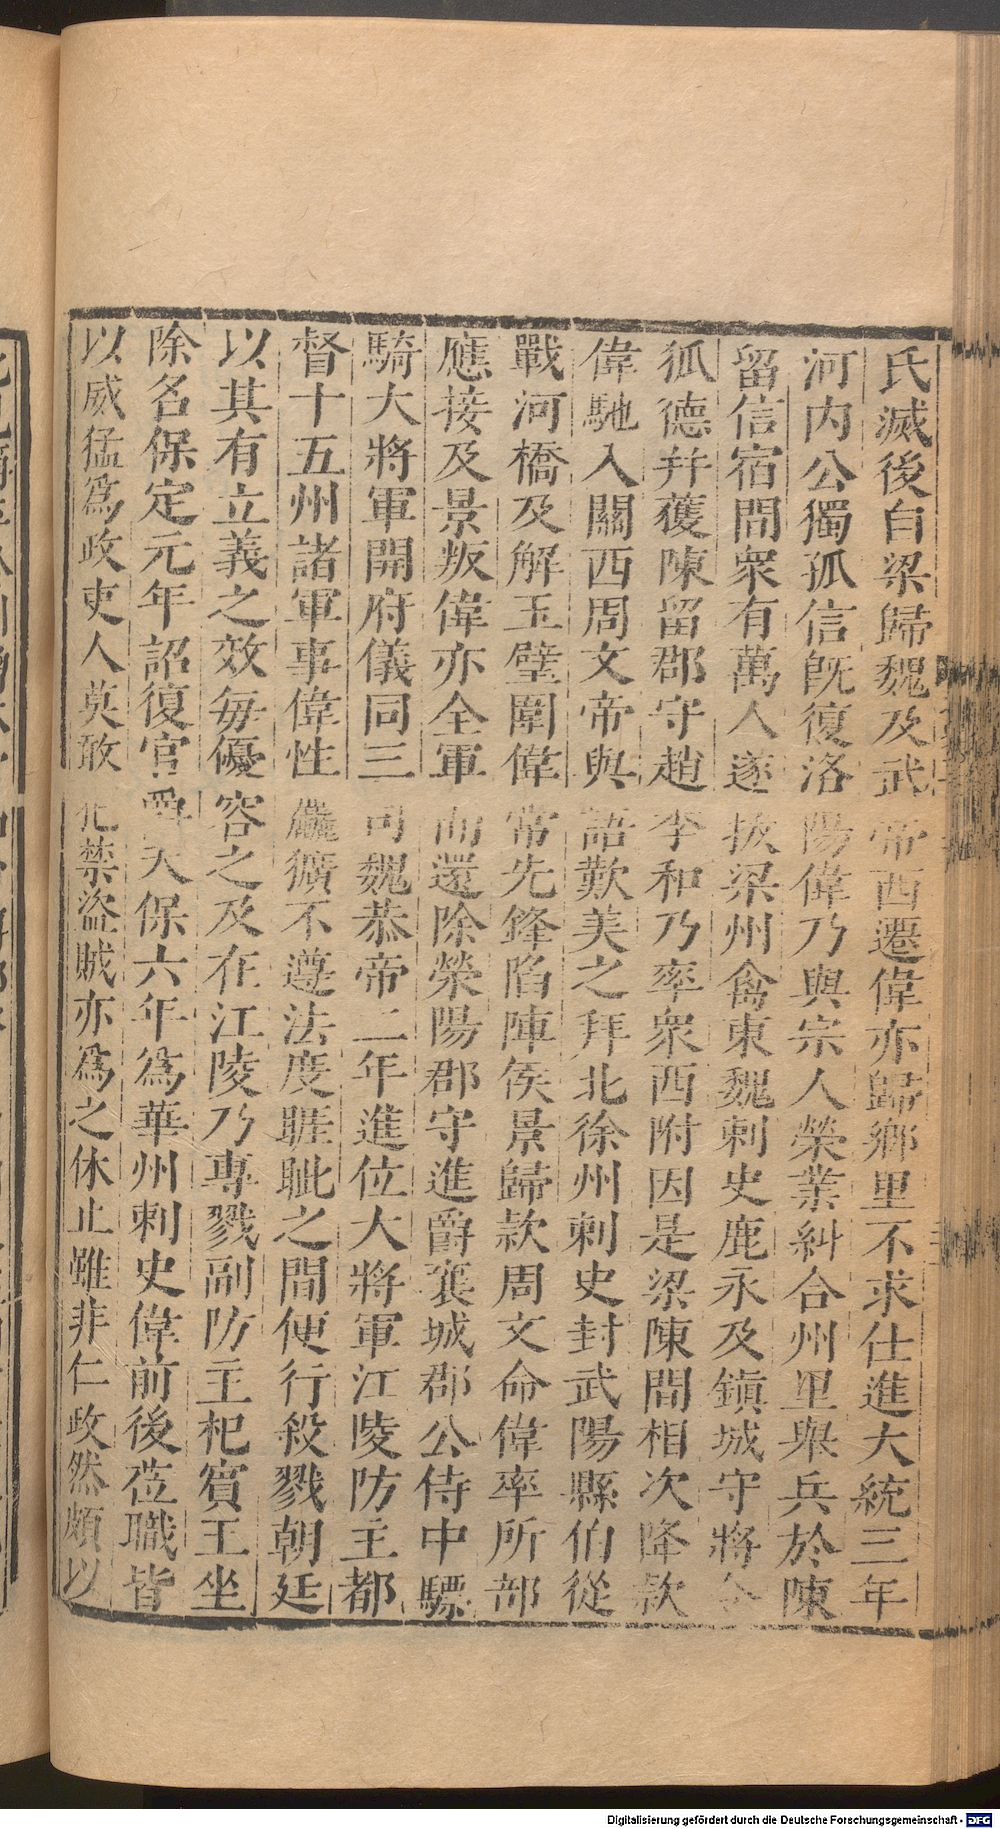 氏滅後自梁歸魏及武帝西遷偉亦歸鄉里不求仕進大統三年
河内公獨孤信旣復洛陽偉乃與宗人榮業糾合州里舉兵於陳
留信宿間衆有萬人遂拔梁州禽東魏刺史鹿永及鎭城守將令
狐德幷獲陳留郡守趙李和乃率衆西附因是梁陳間相次降款
偉馳入關西周文帝與語歎美之拜北徐州刺史封武陽縣伯從
戰河橋及解玉壁圍偉常先鋒陷陣侯景歸款周文命偉率所部
應接及景叛偉亦全軍而還除滎陽郡守進爵襄城郡公侍中驃
騎大將軍開府儀同三司魏恭帝二年進位大將軍江陵防主都
督十五州諸軍事偉性麤獷不遵法度睚眦之間便行殺戮朝廷
以其有立義之效每優容之及在江陵乃專戮副防主杞賓王坐
除名保定元年詔復官爵天保六年爲華州刺史偉前後莅職皆
以威猛爲政吏人莫敢犯禁盜賊亦爲之休止雖非仁政然頗以
Digitalisierung gefördert durch die Deutsche Forschungsgemeinschaft - DFG